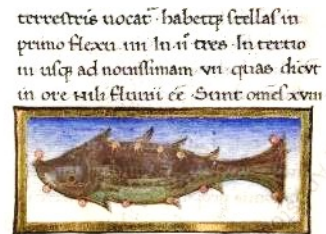 terrestris uocat̄ · habetq; stellas in
primo flexu · iiii · In · ii° tres · In tertio
iii usq; ad nouissimam · vii · quas dicūt
in ore Nili flumī eē · Sunt om̄s xviii